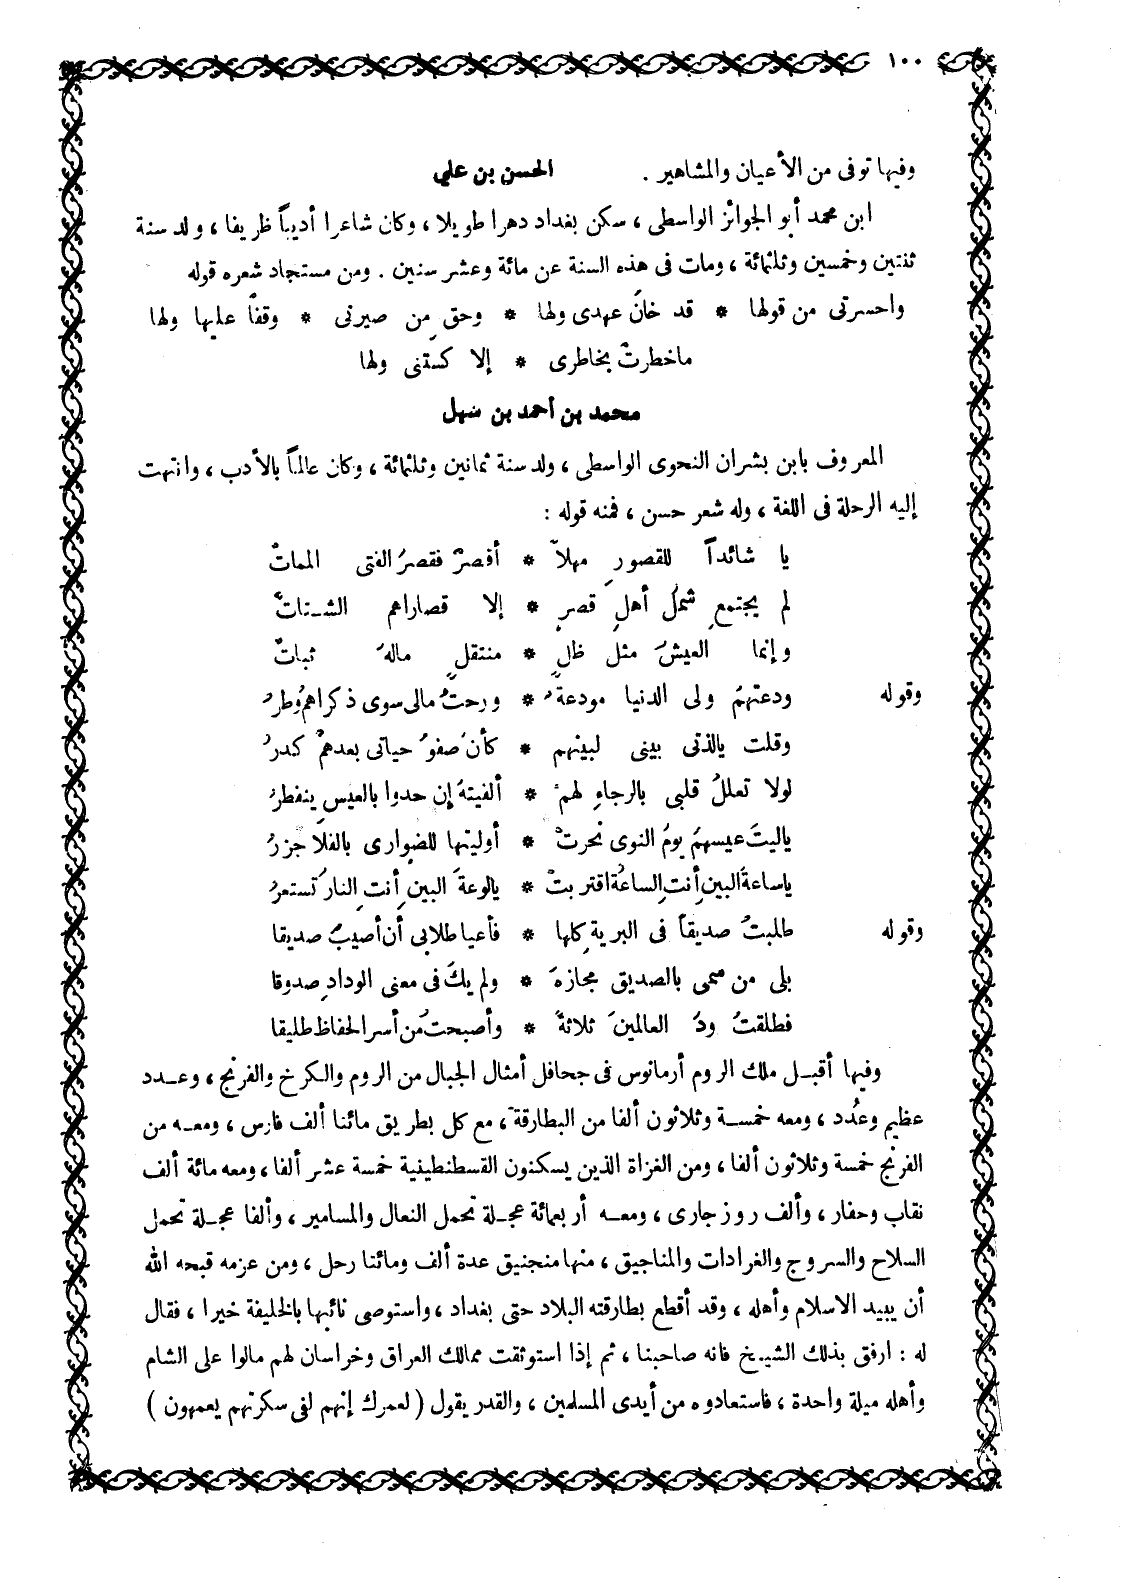 ١٠٠
وفيها توفى من الأعيان والمشاهير . الحسن بن علي
ابن محمد أبو الجوائز الواسطى ، سكن بغداد دهرا طويلا ، وكان شاعرا أديباً ظريفا ، ولد سنة
ثنتين وخمسين وثلثمائة ، ومات فى هذه السنة عن مائة وعشر سنين . ومن مستجاد شعره قوله
واحسرتى من قولها * قد خانَ عهدى ولها * وحق مِن صيرنى * وقفاً عليها ولها
ماخطرتْ بخاطرى * إلا كستنى ولها
محمد بن أحمد بن سهل
المعروف بابن بشران النحوى الواسطى ، ولد سنة ثمانين وثلثمائة ، وكان عالماً بالأدب ، وانتهت
إليه الرحلة فى اللغة ، وله شعر حسن ، فمنه قوله :
يا شائداً للقصورِ مهلاً * أقصرْ فقصرُ الفتى المماتْ
لم يجتمعِ شملُ أهلِ قصرٍ * إلا قصاراهم الشـتاتْ
وإنما العيشُ مثل ظلٍ * منتقلٍ مالهُ ثباتْ
وقوله ودعتهمُ ولى الدنيا مودعةٌ * ورحتُ مالى سوى ذكراهمُ وطرُ
وقلت يالذتى بينى لبينهم * كأن صفوُ حياتى بعدهمْ كدرُ
لولا تعللُ قلبى بالرجاءِ لهمْ * ألفيتهُ إن حدوا بالعيسِ ينفطرُ
ياليتَ عيسهمُ يومُ النوى نحرتْ * أوليتها للضوارى بالفلاَ جزرُ
ياساعةَ البين أنتِ الساعةُ اقتربتْ * يالوعةَ البين أنتِ النارُ تستعرُ
وقوله طلبتُ صديقاً فى البريةِ كلها * فأعيا طلابي أن أصيبُ صديقا
بلى من سمى بالصديق مجازةَ * ولم يكَ فى معنى الودادِ صدوقا
فطلقتُ ودَ العالمينَ ثلاثةً * وأصبحتُ من أسر الحفاظ طليقا
وفيها أقبـل ملك الروم أرمانوس فى جحافل أمثال الجبال من الروم والكرخ والفرنج ، وعـدد
عظيم وعُدد ، ومعه خمسـة وثلاثون ألفا من البطارقة ، مع كل بطريق مائتا ألف فارس ، ومعـه من
الفرنج خمسة وثلاثون ألفا ، ومن الغزاة الذين يسكنون القسطنطينية خمسة عشر ألفا ، ومعه مائة ألف
نقاب وحفار ، وألف روزجارى ، ومعـه أربعمائة عجـلة تحمل النعال والمسامير ، وألفا عجـلة تحمل
السلاح والسروج والغرادات والمناجيق ، منها منجنيق عدة ألف ومائتا رحل ، ومن عزمه قبحه الله
أن يبيد الاسلام وأهله ، وقد أقطع بطارقته البلاد حتى بغداد ، واستوصى نائبها بالخليفة خيرا ، فقال
له : ارفق بذلك الشيخ فانه صاحبنا ، ثم إذا استوثقت ممالك العراق وخراسان لهم مالوا على الشام
وأهله ميلة واحدة ، فاستعادوه من أيدى المسلمين ، والقدر يقول ( لعمرك إنهم لفى سكرتهم يعمهون )